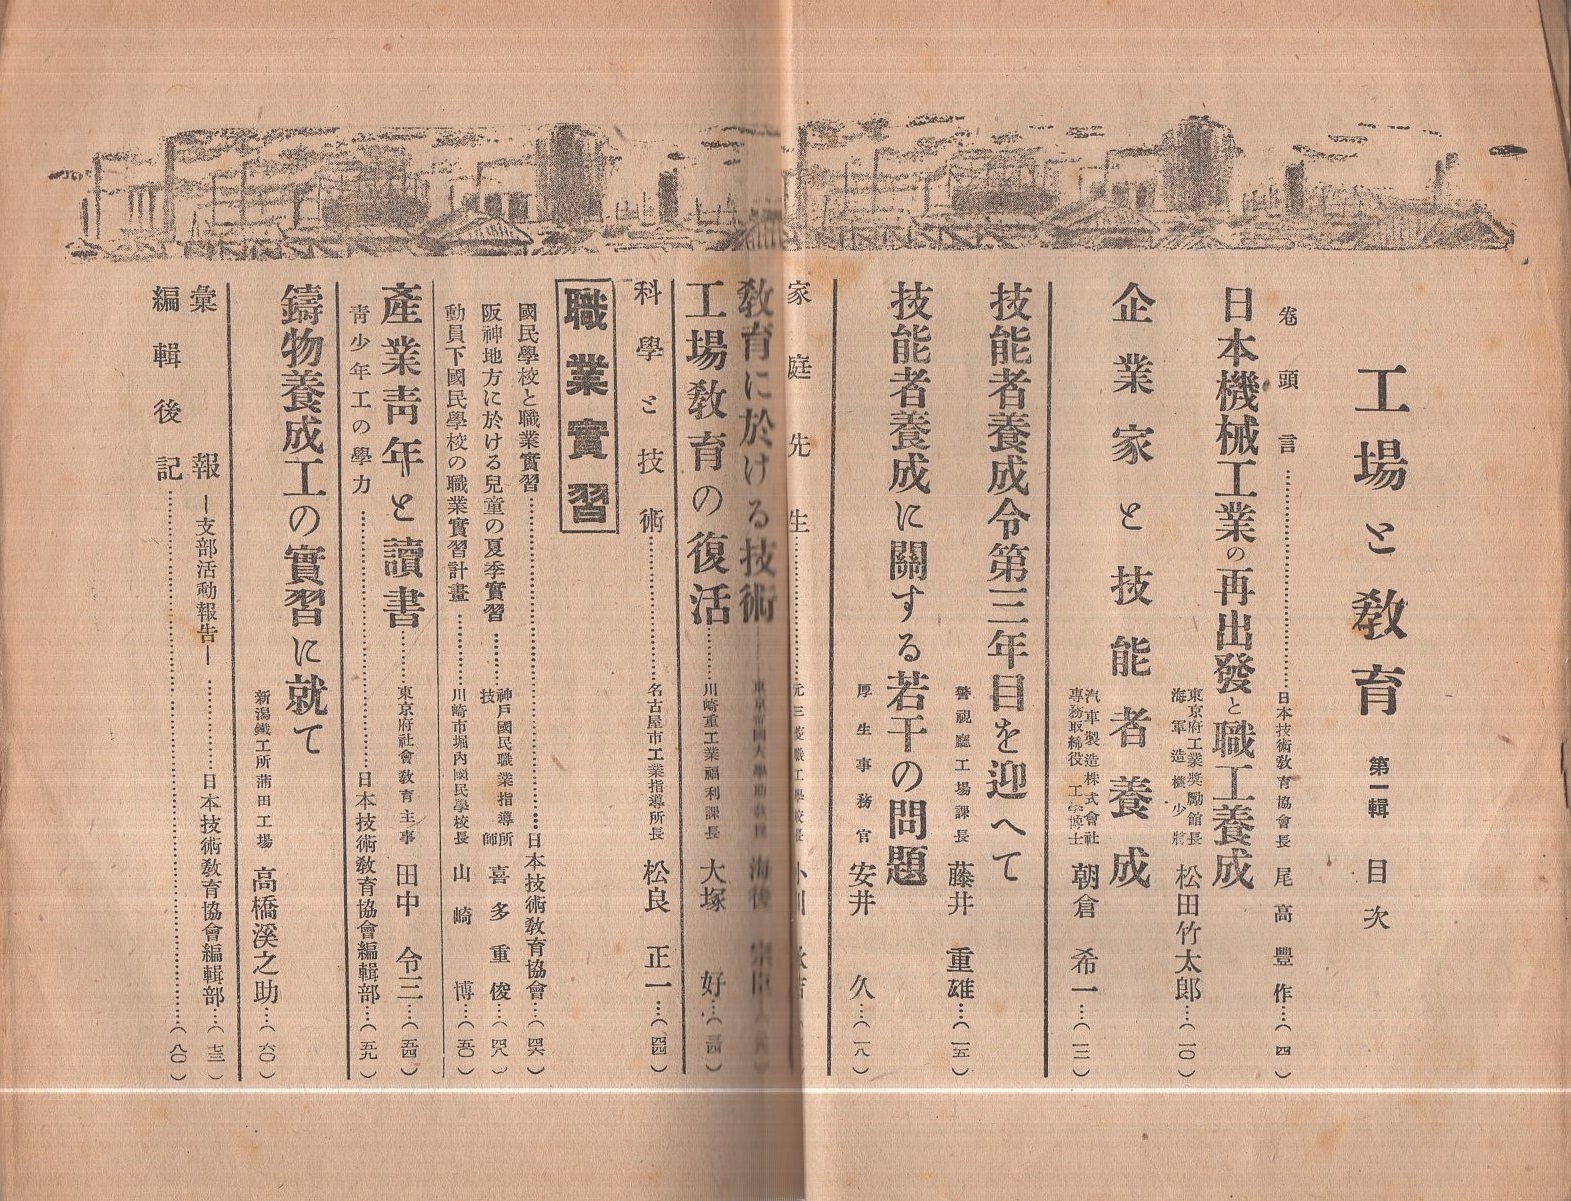 工場と教育 第一輯 目次
卷頭言……日本技術教育協會長 尾高豐作…(四)
日本機械工業の再出發と職工養成
東京府工業奬勵館長
海軍造機少將 松田竹太郎…(一〇)
企業家と技能者養成
汽車製造株式會社
專務取締役 工學博士 朝倉希一…(一二)
技能者養成令第三年目を迎へて
警視廳工場課長 藤井重雄…(一五)
技能者養成に關する若干の問題
厚生事務官 安井久…(一八)
家庭先生……元三菱職工學校長
教育に於ける技術……東京帝國大學助教授 海後宗臣
工場教育の復活……川崎重工業福利課長 大塚好…(三四)
科學と技術……名古屋市工業指導所長 松良正一…(四四)
職業實習
國民學校と職業實習……日本技術教育協會…(四六)
阪神地方に於ける兒童の夏季實習……神戶國民職業指導所
技師 喜多重俊…(四八)
動員下國民學校の職業實習計畫……川崎市堀內國民學校長 山崎博…(五〇)
產業靑年と讀書……東京府社會教育主事 田中令三…(五四)
靑少年工の學力……日本技術教育協會編輯部…(五九)
鑄物養成工の實習に就て
新潟鐵工所蒲田工場 高橋溪之助…(六〇)
彙報―支部活動報告―……日本技術教育協會編輯部…(七三)
編輯後記……(八〇)